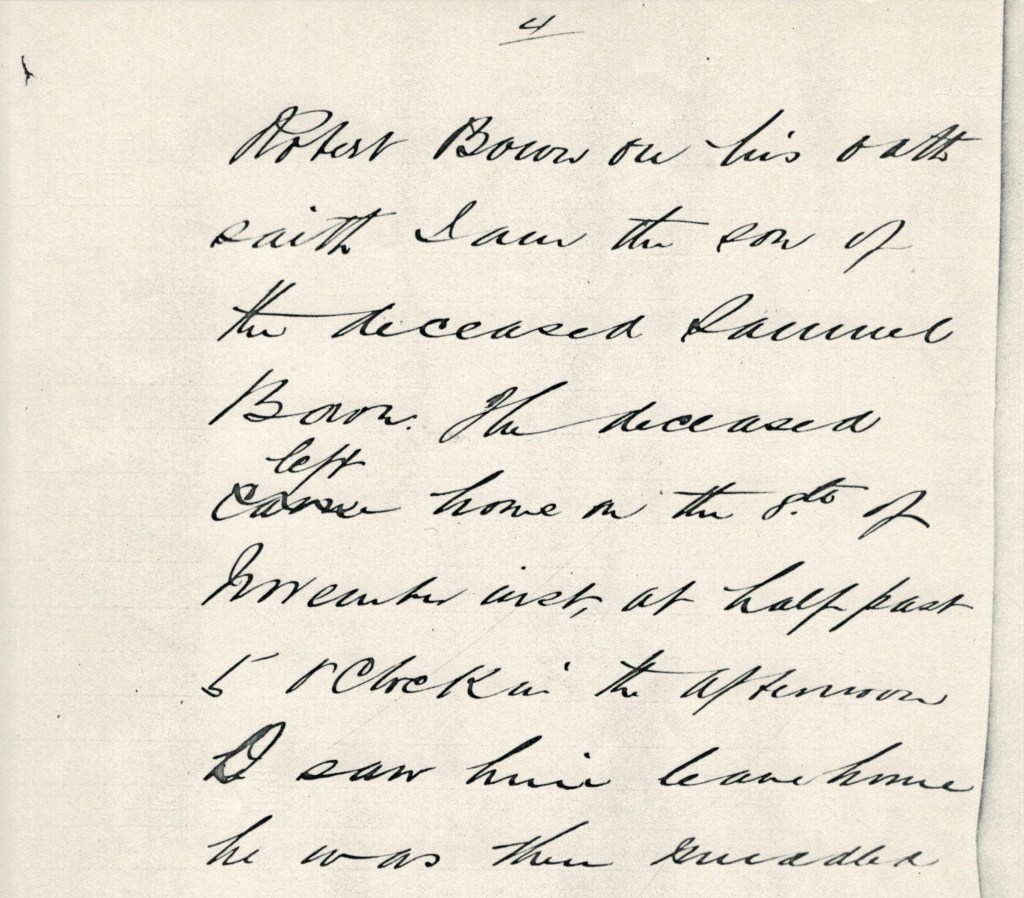 4
Robert Bown on his oath
saith I am the son of
the deceased Samuel
Bown. The deceased
left
came home on the 8th of
November inst, at half past
5 O Clock in the afternoon
I saw him leave home
he was then